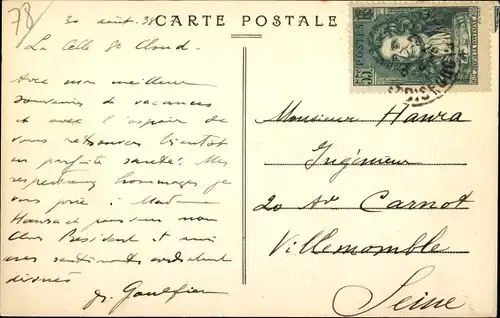 78
30 août 38
CARTE POSTALE
La Celle St Cloud.
Avec mon meilleur
souvenir de vacances
et avec l'espoir de
vous retrouver bientôt
en parfaite santé. Mes
respectueux hommages je
vous prie à Madame
et mes sentiments cordialement
dévoués
Monsieur Hanra
Ingénieur
20 Av Carnot
Villemomble
Seine